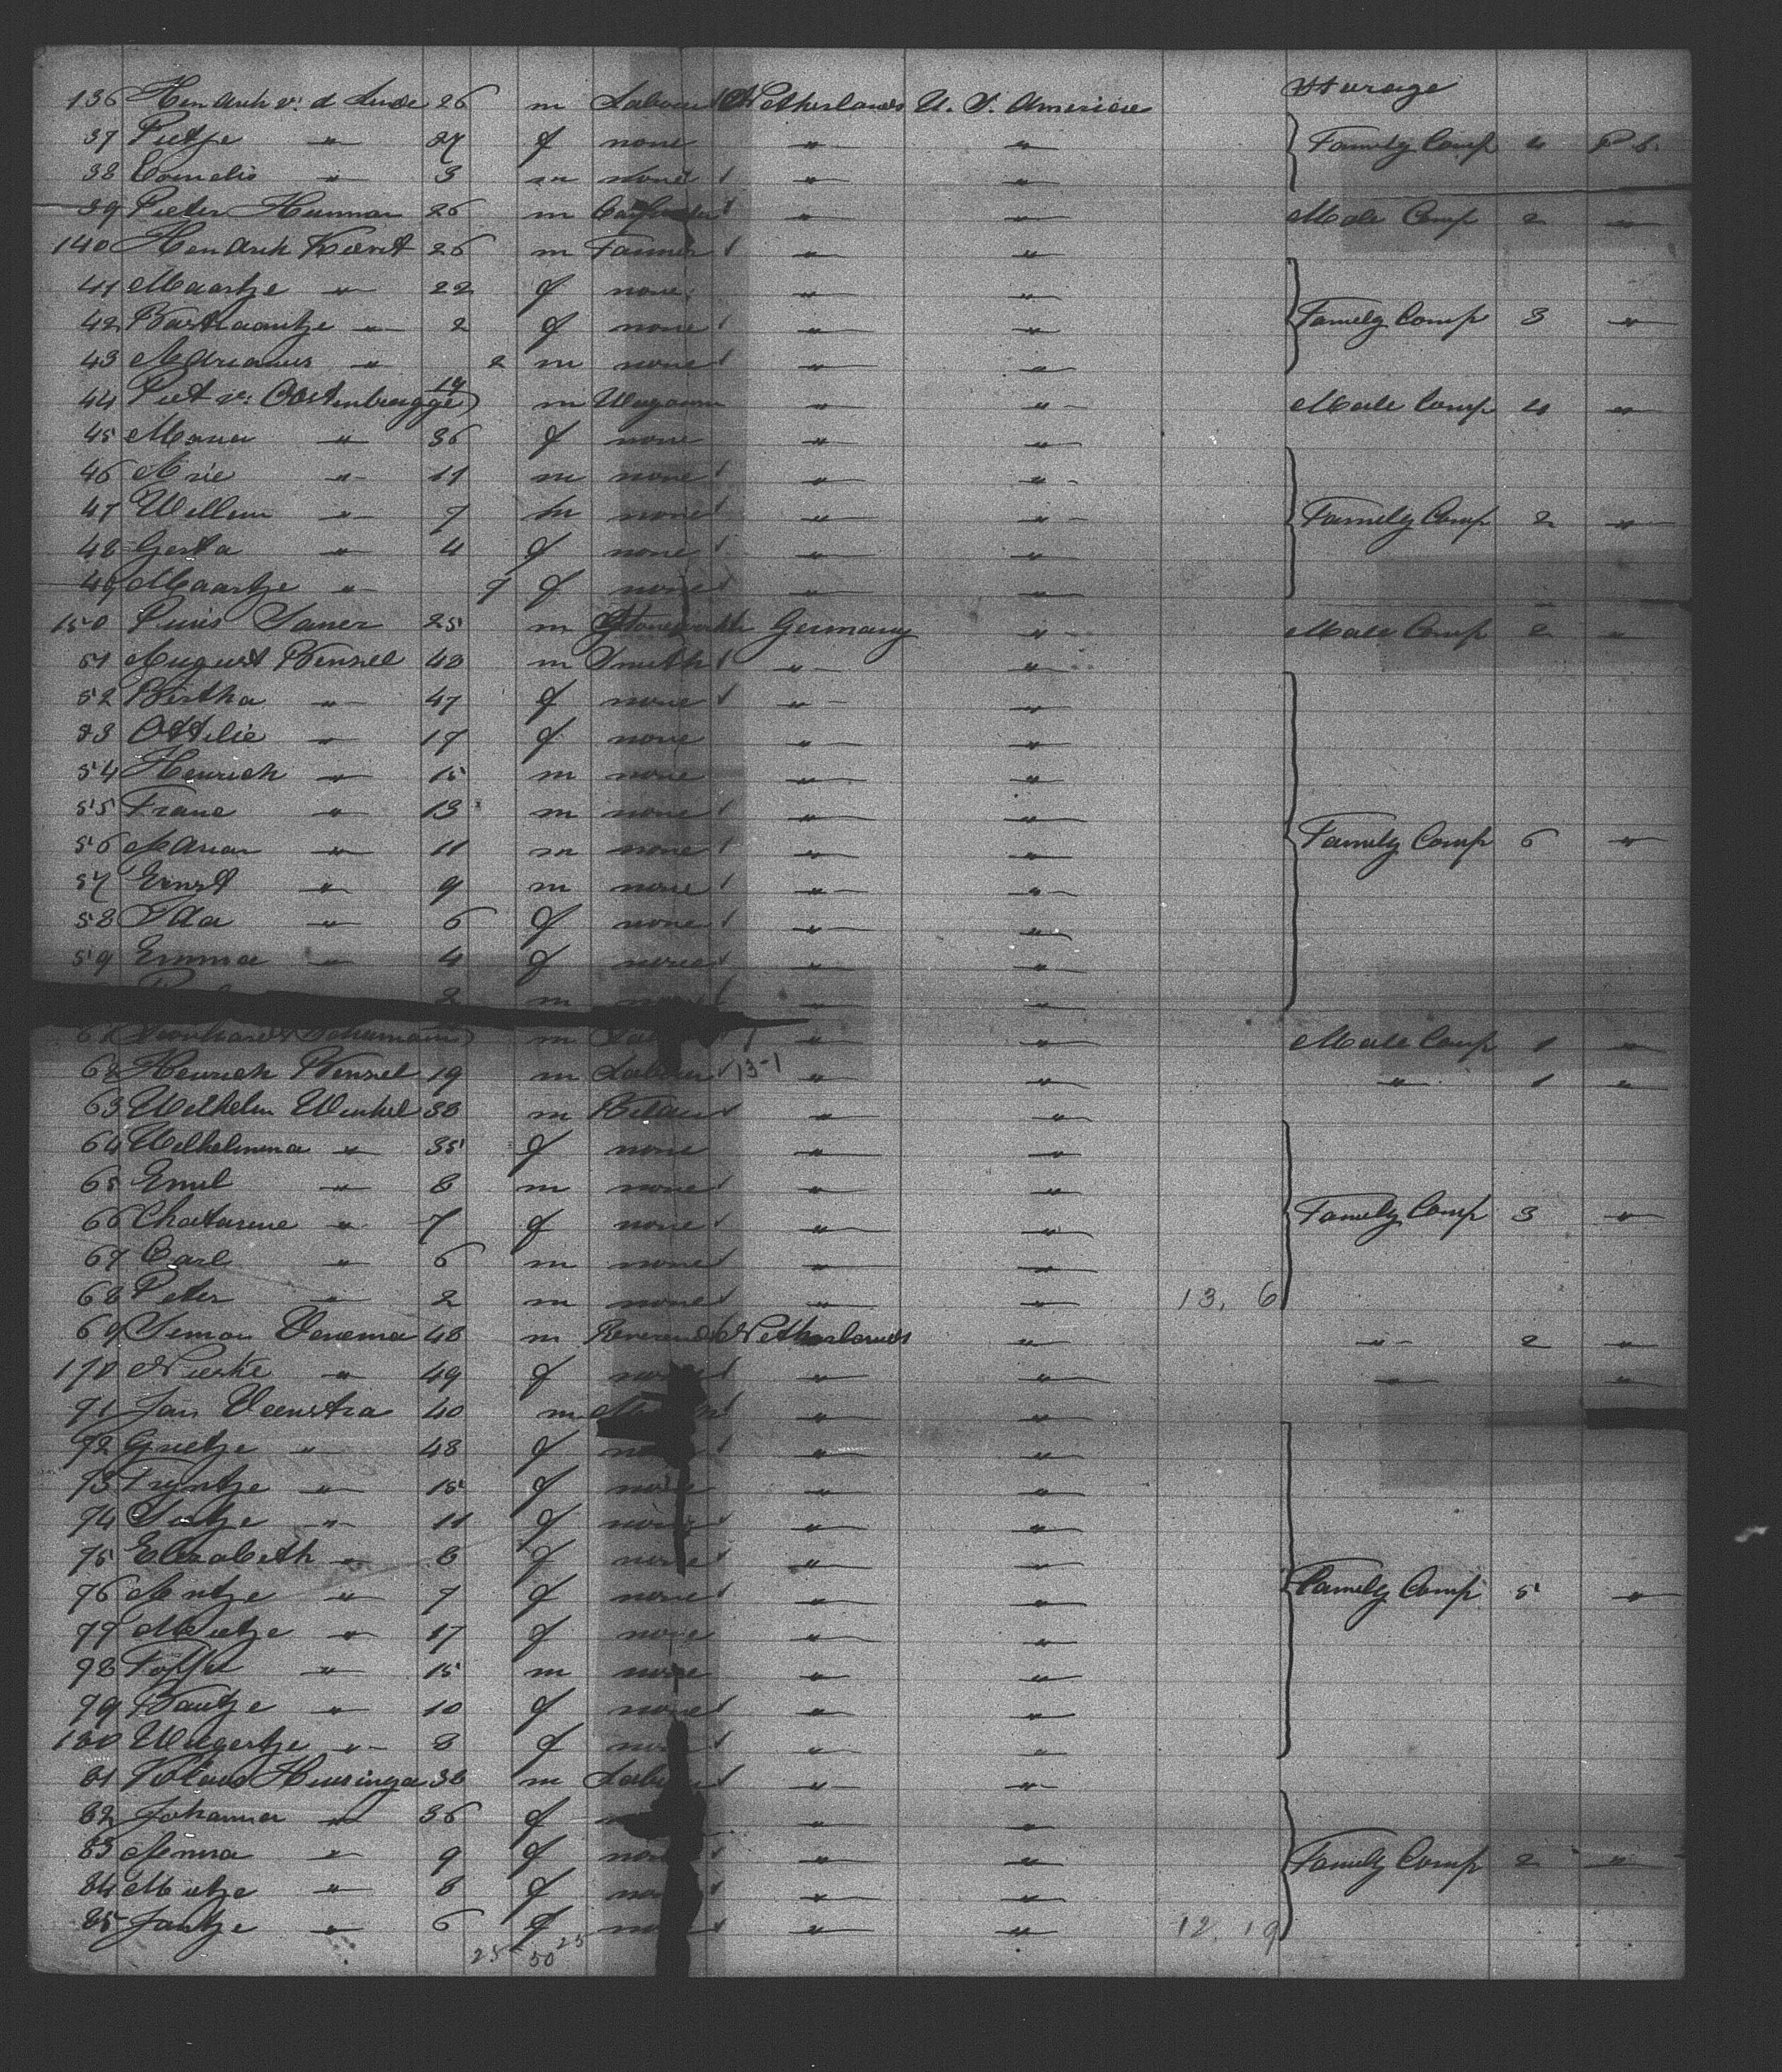 Steerage
136 Hendrik v: d Linde 26 m Labour Netherlands U. S. America
37 Pietje " 27 f none " " Family Comp 4 P. b.
38 Cornelis " 3 m none " "
39 Pieter Hamman 26 m Carpenter " " Male Comp 2 "
140 Hendrik Kievit 26 m Farmer " "
41 Maartje " 22 f none " "
42 Bastiaantje " 2 f none " " Family Comp 3 "
43 Adrianus " 2 m none " "
44 Piet v: Oostenbrugge 19 m " " Male Comp 4 "
45 Maria " 36 f none " "
46 Arie " 11 m none " "
47 Willem " 7 m none " " Family Comp 2 "
48 Gerta " 4 f none " "
49 Maartje " 7 f none " "
150 25 m Germany " Male Comp 2 "
51 August Wensel 48 m Smith " "
52 Bertha " 47 f none " "
53 Ottilie " 17 f none " "
54 Heinrich " 15 m none " "
55 Franc " 13 m none " "
56 " 11 m none " " Family Comp 6 "
57 Ernst " 9 m none " "
58 Ida " 6 f none " "
59 Emma " 4 f none " "
2 m " "
61 Schumann m " " Male Comp 1 "
62 Heinrich Wensel 19 m Labour 13-1 " " " 1 "
63 Wilhelm Winkel 38 m " "
64 Wilhelmina " 35 f none " "
65 Emil " 8 m none " "
66 Chatarine " 7 f none " " Family Comp 3 "
67 Carl " 6 m none " "
68 Peter " 2 m none " " 13. 6
69 Simon Venema 48 m Reverend Netherlands " " 2 "
170 Nieske " 49 f none " " "
71 Jan Veenstra 40 m " "
72 Grietje " 48 f " "
73 Tryntje " 15 f none " "
74 " 11 f none " "
75 Elizabeth " 8 f none " "
76 Antje " 7 f none " " Family Comp 5 "
77 Mietje " 17 f none " "
78 " 15 m none " "
79 Baukje " 10 f none " "
180 Wiegertje " 8 f none " "
81 Klaas Huisinga 38 m Labour " "
82 Johanna " 36 f " "
83 Anna " 9 f " " Family Comp 2 "
84 Mietje " 8 f " "
85 Jantje " 6 f " " 12. 19
25 50 25